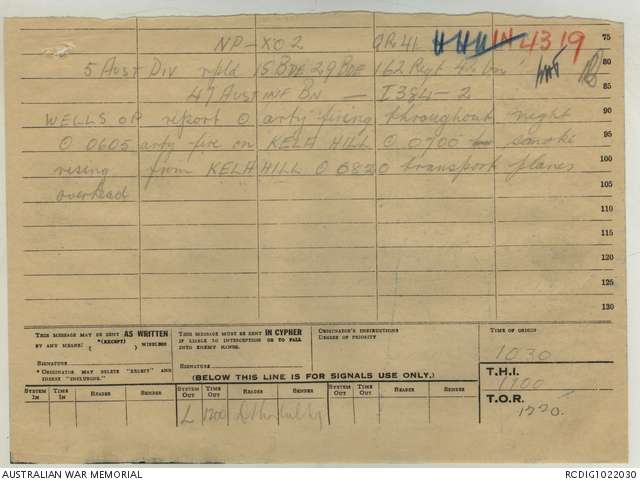 NP-XO2 GR41 IN 4319 75
5 AUST DIV rptd 15 BDE 29 BDE 162 Regt 80
47 AUST INF BN — I384-2 85
WELLS OP report O arty firing throughout night 90
O 0605 arty fire on KELA HILL O 0700 smoke 95
rising from KELA HILL O 0820 transport planes 100
overhead 105
110
115
120
125
130
THIS MESSAGE MAY BE SENT AS WRITTEN
BY ANY MEANS *(EXCEPT) WIRELESS
SIGNATURE
* ORIGINATOR MAY DELETE "EXCEPT" AND INSERT "INCLUDING."
THIS MESSAGE MUST BE SENT IN CYPHER
IF LIABLE TO INTERCEPTION OR TO FALL
INTO ENEMY HANDS.
SIGNATURE
ORIGINATOR'S INSTRUCTIONS
DEGREE OF PRIORITY
TIME OF ORIGIN
1030
T.H.I.
1100
T.O.R.
1220
(BELOW THIS LINE IS FOR SIGNALS USE ONLY.)
SYSTEM IN TIME IN READER SENDER SYSTEM OUT TIME OUT READER SENDER SYSTEM OUT TIME OUT READER SENDER SYSTEM OUT TIME OUT READER SENDER
L 1200
AUSTRALIAN WAR MEMORIAL RCDIG1022030